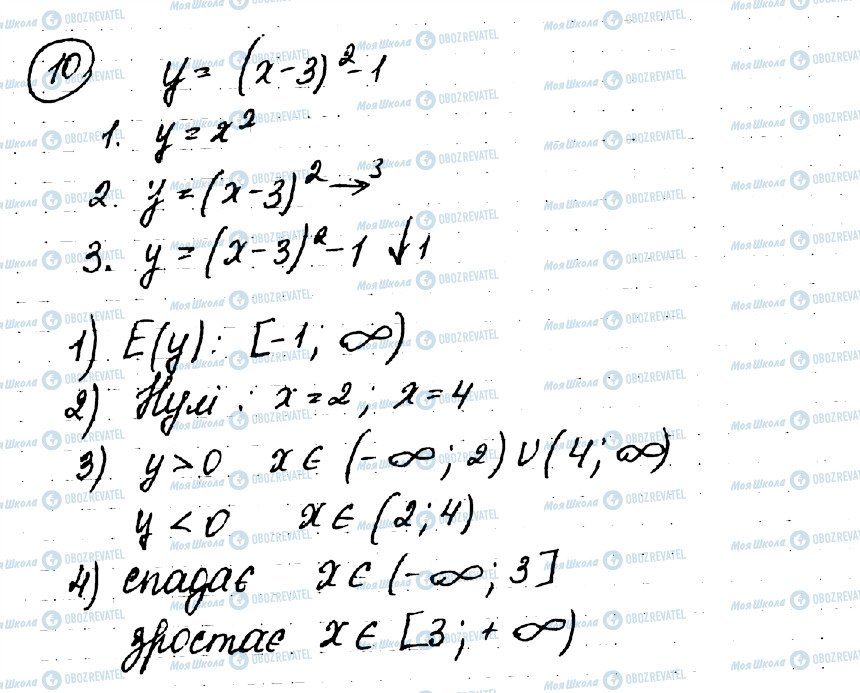 10 y = (x-3)² - 1
1. y = x²
2. y = (x-3)² → 3
3. y = (x-3)² - 1 ↓ 1
1) E(y): [-1; ∞)
2) Нулі: x = 2; x = 4
3) y > 0 x ∈ (-∞; 2) ∪ (4; ∞)
y < 0 x ∈ (2; 4)
4) спадає x ∈ (-∞; 3]
зростає x ∈ [3; +∞)
Моя Школа OBOZREVATEL